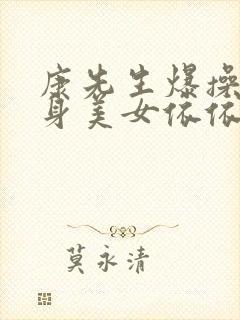 康先生爆操
身美女依依
莫永清